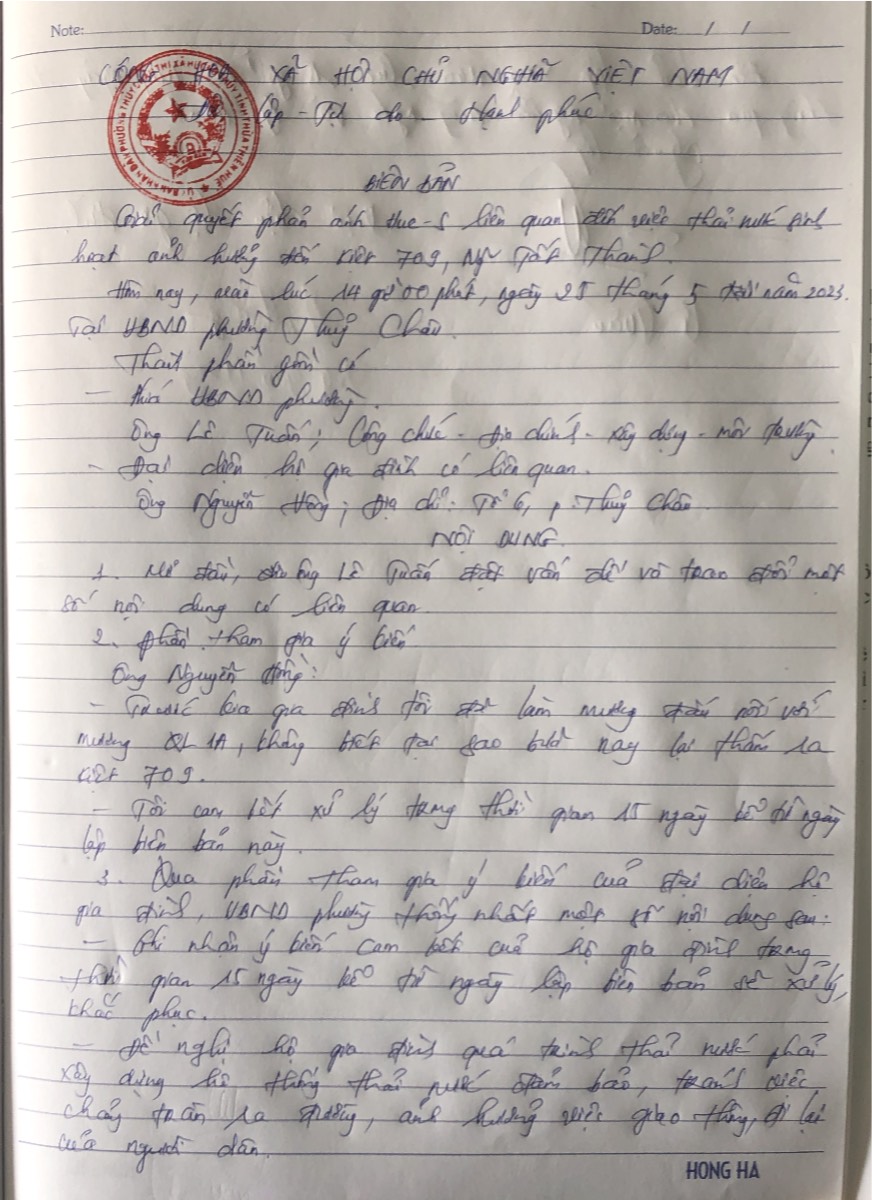 Note: Date: / /
CỘNG HOÀ XÃ HỘI CHỦ NGHĨA VIỆT NAM
lập - Tự do - Hạnh phúc
BIÊN BẢN
Giải quyết phản ánh Hue-S liên quan đến việc thải nước sinh
hoạt ảnh hưởng đến kiệt 709, Ng Tất Thành.
Hôm nay, vào lúc 14 giờ 00 phút, ngày 25 tháng 5 năm 2023.
Tại UBND phường Thuỷ Châu.
Thành phần gồm có
- UBND phường.
Ông Lê Tuấn; Công chức - Địa chính - Xây dựng - môi trường.
- Đại diện hộ gia đình có liên quan.
Ông Nguyễn Hồng; Địa chỉ: Tổ 6, p. Thuỷ Châu
NỘI DUNG
1. Mở đầu, ông Lê Tuấn đặt vấn đề và trao đổi một
số nội dung có liên quan
2. Phần tham gia ý kiến
Ông Nguyễn Hồng:
- Trước kia gia đình tôi đã làm mương đấu nối với
mương QL 1A, không biết tại sao bữa nay lại thấm ra
kiệt 709.
- Tôi cam kết xử lý trong thời gian 15 ngày kể từ ngày
lập biên bản này.
3. Qua phần tham gia ý kiến của đại diện hộ
gia đình, UBND phường thống nhất một số nội dung sau:
- Ghi nhận ý kiến cam kết của hộ gia đình trong
thời gian 15 ngày kể từ ngày lập biên bản sẽ xử lý,
khắc phục.
- Đề nghị hộ gia đình quá trình thải nước phải
xây dựng hệ thống thải nước đảm bảo, tránh việc
chảy tràn ra đường, ảnh hưởng việc giao thông, đi lại
của người dân.
HONG HA